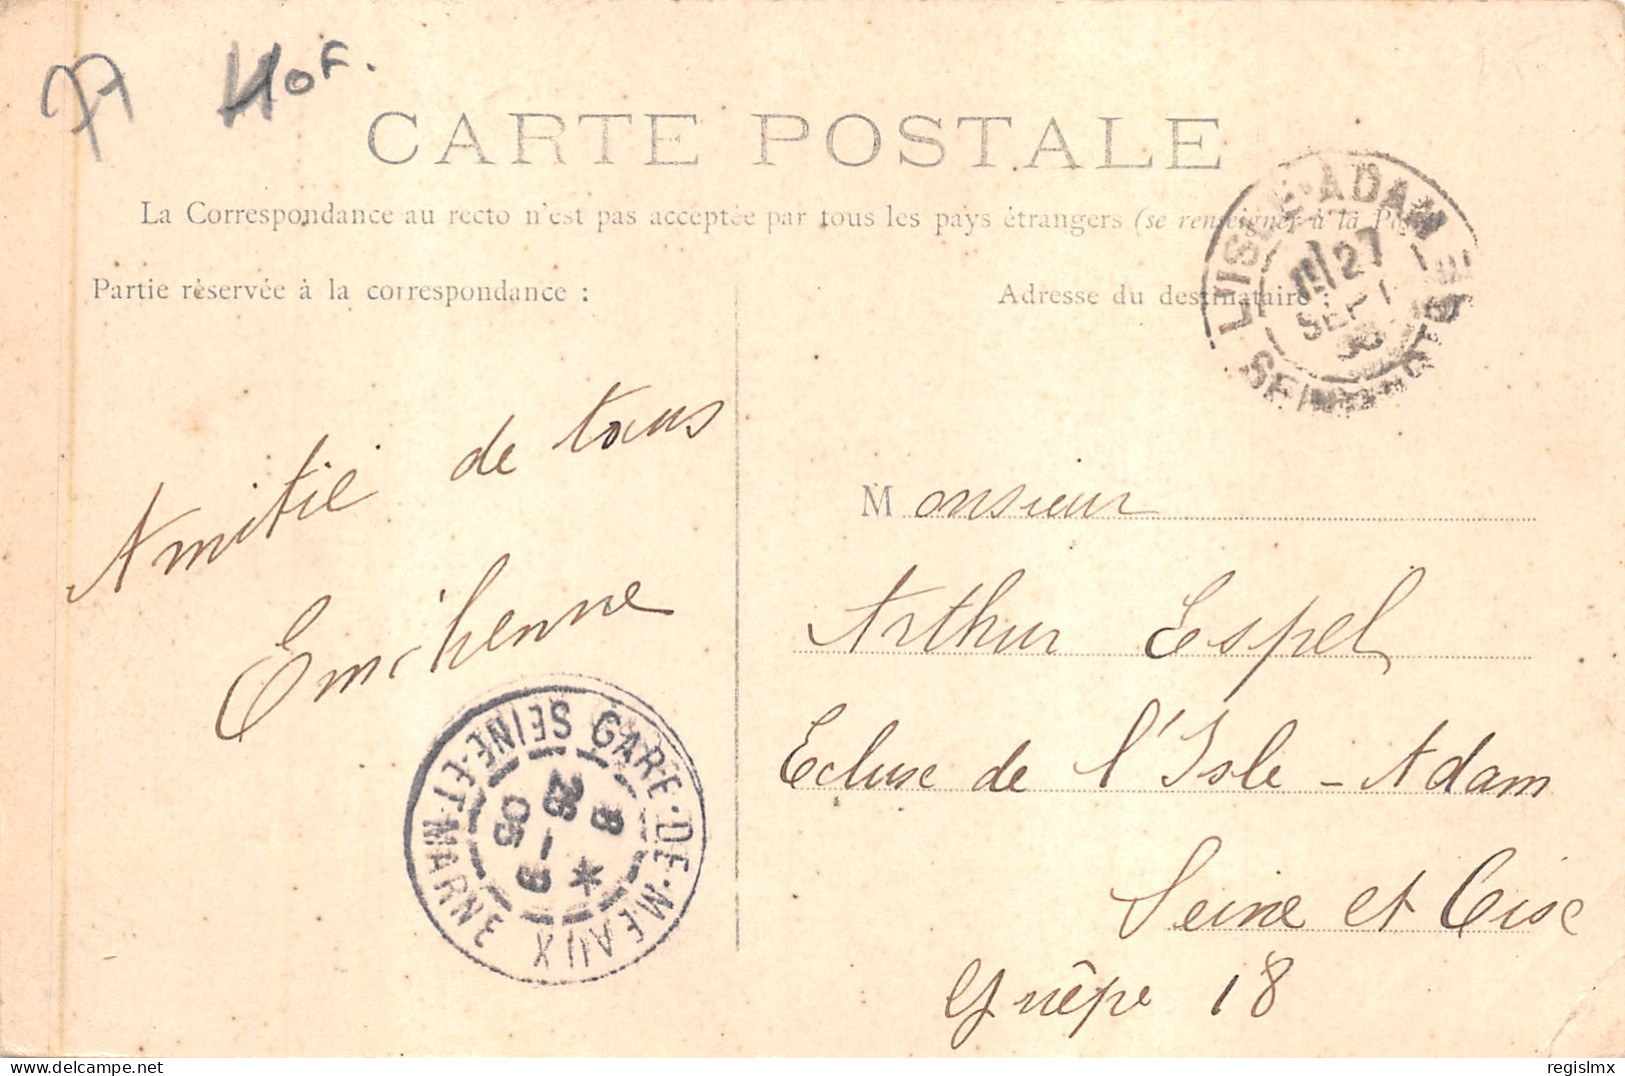 77 Hof.
CARTE POSTALE
La Correspondance au recto n'est pas acceptée par tous les pays étrangers (se renseigner à la Poste
Partie réservée à la correspondance :
Adresse du destinataire :
L'ISLE-ADAM
27
SEPT
SEINE-ET-OISE
Amitié de tous
Emilienne
Monsieur
Arthur Espel
Ecluse de l'Isle-Adam
Seine et Oise
Guêpe 18
GARE-DE-MEAUX
8
26-9
05
SEINE-ET-MARNE
regislmx